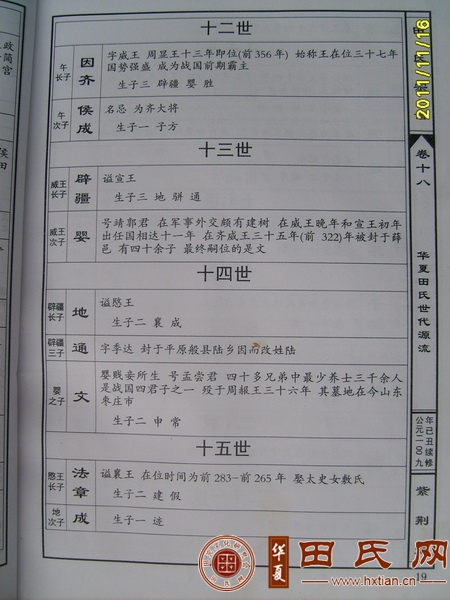 十二世
午长子
因齐
字威王 周显王十三年即位(前356年) 始称王在位三十七年
国势强盛 成为战国前期霸主
生子三 辟疆 婴 胜
午次子
侯成
名忌 为齐大将
生子一 子方
十三世
威王长子
辟疆
谥宣王
生子三 地 骈 通
威王次子
婴
号靖郭君 在军事外交颇有建树 在威王晚年和宣王初年
出任国相达十一年 在齐威王三十五年(前 322)年被封于薛
邑 有四十余子 最终嗣位的是文
十四世
辟疆长子
地
谥愍王
生子二 襄 成
辟疆三子
通
字季达 封于平原般县陆乡因而改姓陆
婴之子
文
婴贱妾所生 号孟尝君 四十多兄弟中最少养士三千余人
是战国四君子之一 殁于周赧王三十六年 其墓地在今山东
枣庄市
生子二 申 常
十五世
愍王长子
法章
谥襄王 在位时间为前283—前265年 娶太史女敫氏
生子二 建 假
地次子
成
生子一 迹
2011/11/16
卷十八
华夏田氏世代源流
公元二00九
年己丑续修
紫荆
19
政简宫
侯田
华夏
田氏网
www.hxtian.cn